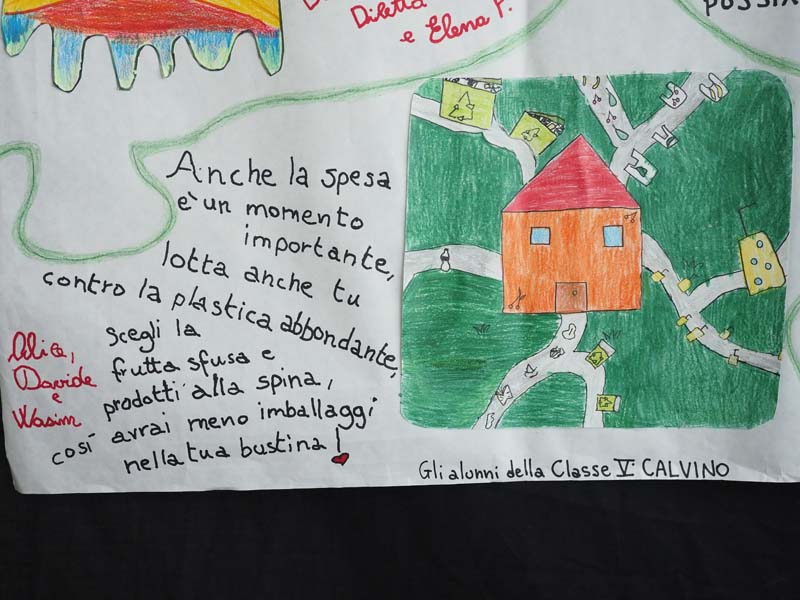 Diletta
e Elena P.
Anche la spesa
è un momento
importante,
lotta anche tu
contro la plastica abbondante,
scegli la
frutta sfusa e
prodotti alla spina,
così avrai meno imballaggi
nella tua bustina!
Alica,
Davide
e
Wasim
Gli alunni della Classe V CALVINO